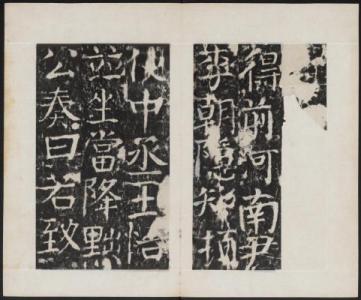 得前河南尹
李朝隱知頓
使中丞王怡
竝坐當降黜
公奏曰若致